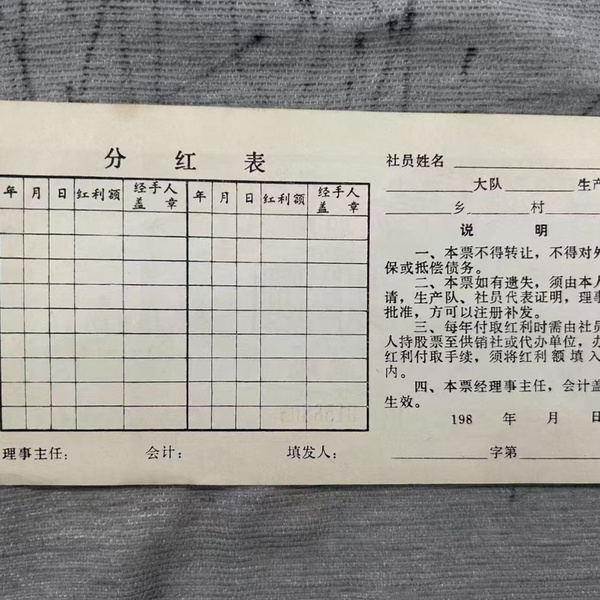 分 红 表
年 月 日 红利额 经手人盖 章 年 月 日 红利额 经手人盖 章
理事主任： 会计： 填发人：
社员姓名
大队 生产
乡 村
说 明
一、本票不得转让，不得对外
保或抵偿债务。
二、本票如有遗失，须由本人
请，生产队、社员代表证明，理事
批准，方可以注册补发。
三、每年付取红利时需由社员
人持股票至供销社或代办单位，办
红利付取手续，须将红利额填入
内。
四、本票经理事主任，会计盖
生效。
198 年 月 日
字第